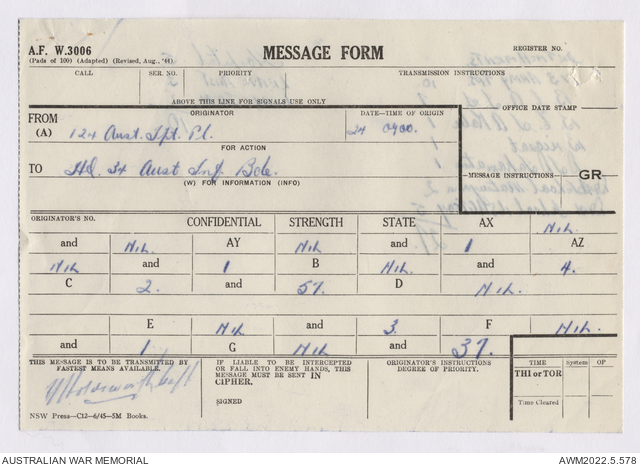 A.F. W.3006
(Pads of 100) (Adapted) (Revised, Aug., '44)
MESSAGE FORM
REGISTER NO.
CALL SER. NO. PRIORITY TRANSMISSION INSTRUCTIONS
ABOVE THIS LINE FOR SIGNALS USE ONLY
OFFICE DATE STAMP
FROM ORIGINATOR DATE–TIME OF ORIGIN
(A) 124 Aust. Tpt. Pl. 24 0900.
FOR ACTION
TO HQ. 34 Aust Inf. Bde.
(W) FOR INFORMATION (INFO)
MESSAGE INSTRUCTIONS GR
ORIGINATOR'S NO. CONFIDENTIAL STRENGTH STATE AX NIL
and NIL AY NIL and 1 AZ
NIL and 1 B NIL and 4.
C 2. and 51. D NIL.
E NIL and 3. F NIL.
and 1 G NIL and 37.
THIS MESSAGE IS TO BE TRANSMITTED BY FASTEST MEANS AVAILABLE.
IF LIABLE TO BE INTERCEPTED OR FALL INTO ENEMY HANDS, THIS MESSAGE MUST BE SENT IN CIPHER.
SIGNED
ORIGINATOR'S INSTRUCTIONS DEGREE OF PRIORITY.
TIME System OP
THI or TOR
Time Cleared
Holdsworth Capt
NSW Press—C12—6/45—5M Books.
AUSTRALIAN WAR MEMORIAL AWM2022.5.578